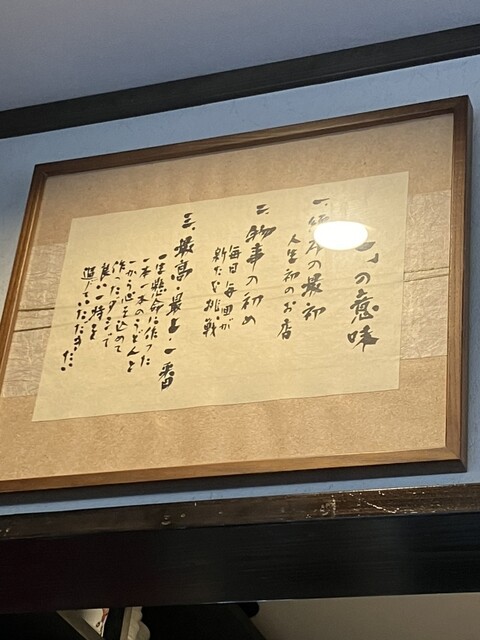 の意味
一、
の最初
人生初のお店
二、物事の初め
毎日毎回が
新たな挑戦
三、最高・最上・一番
一生懸命に作った
一本一本のうどんを
一から心を込めて
作ったダシで
良い一時を
過ごしていただきたい